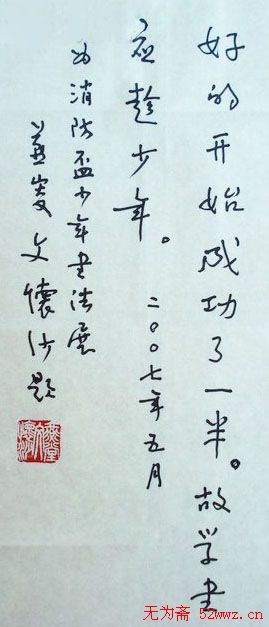 好的开始成功了一半。故学书
应趁少年。二〇〇七年五月
为消防盃少年书法展
燕叟文怀沙题
无为斋 52wwz.cn